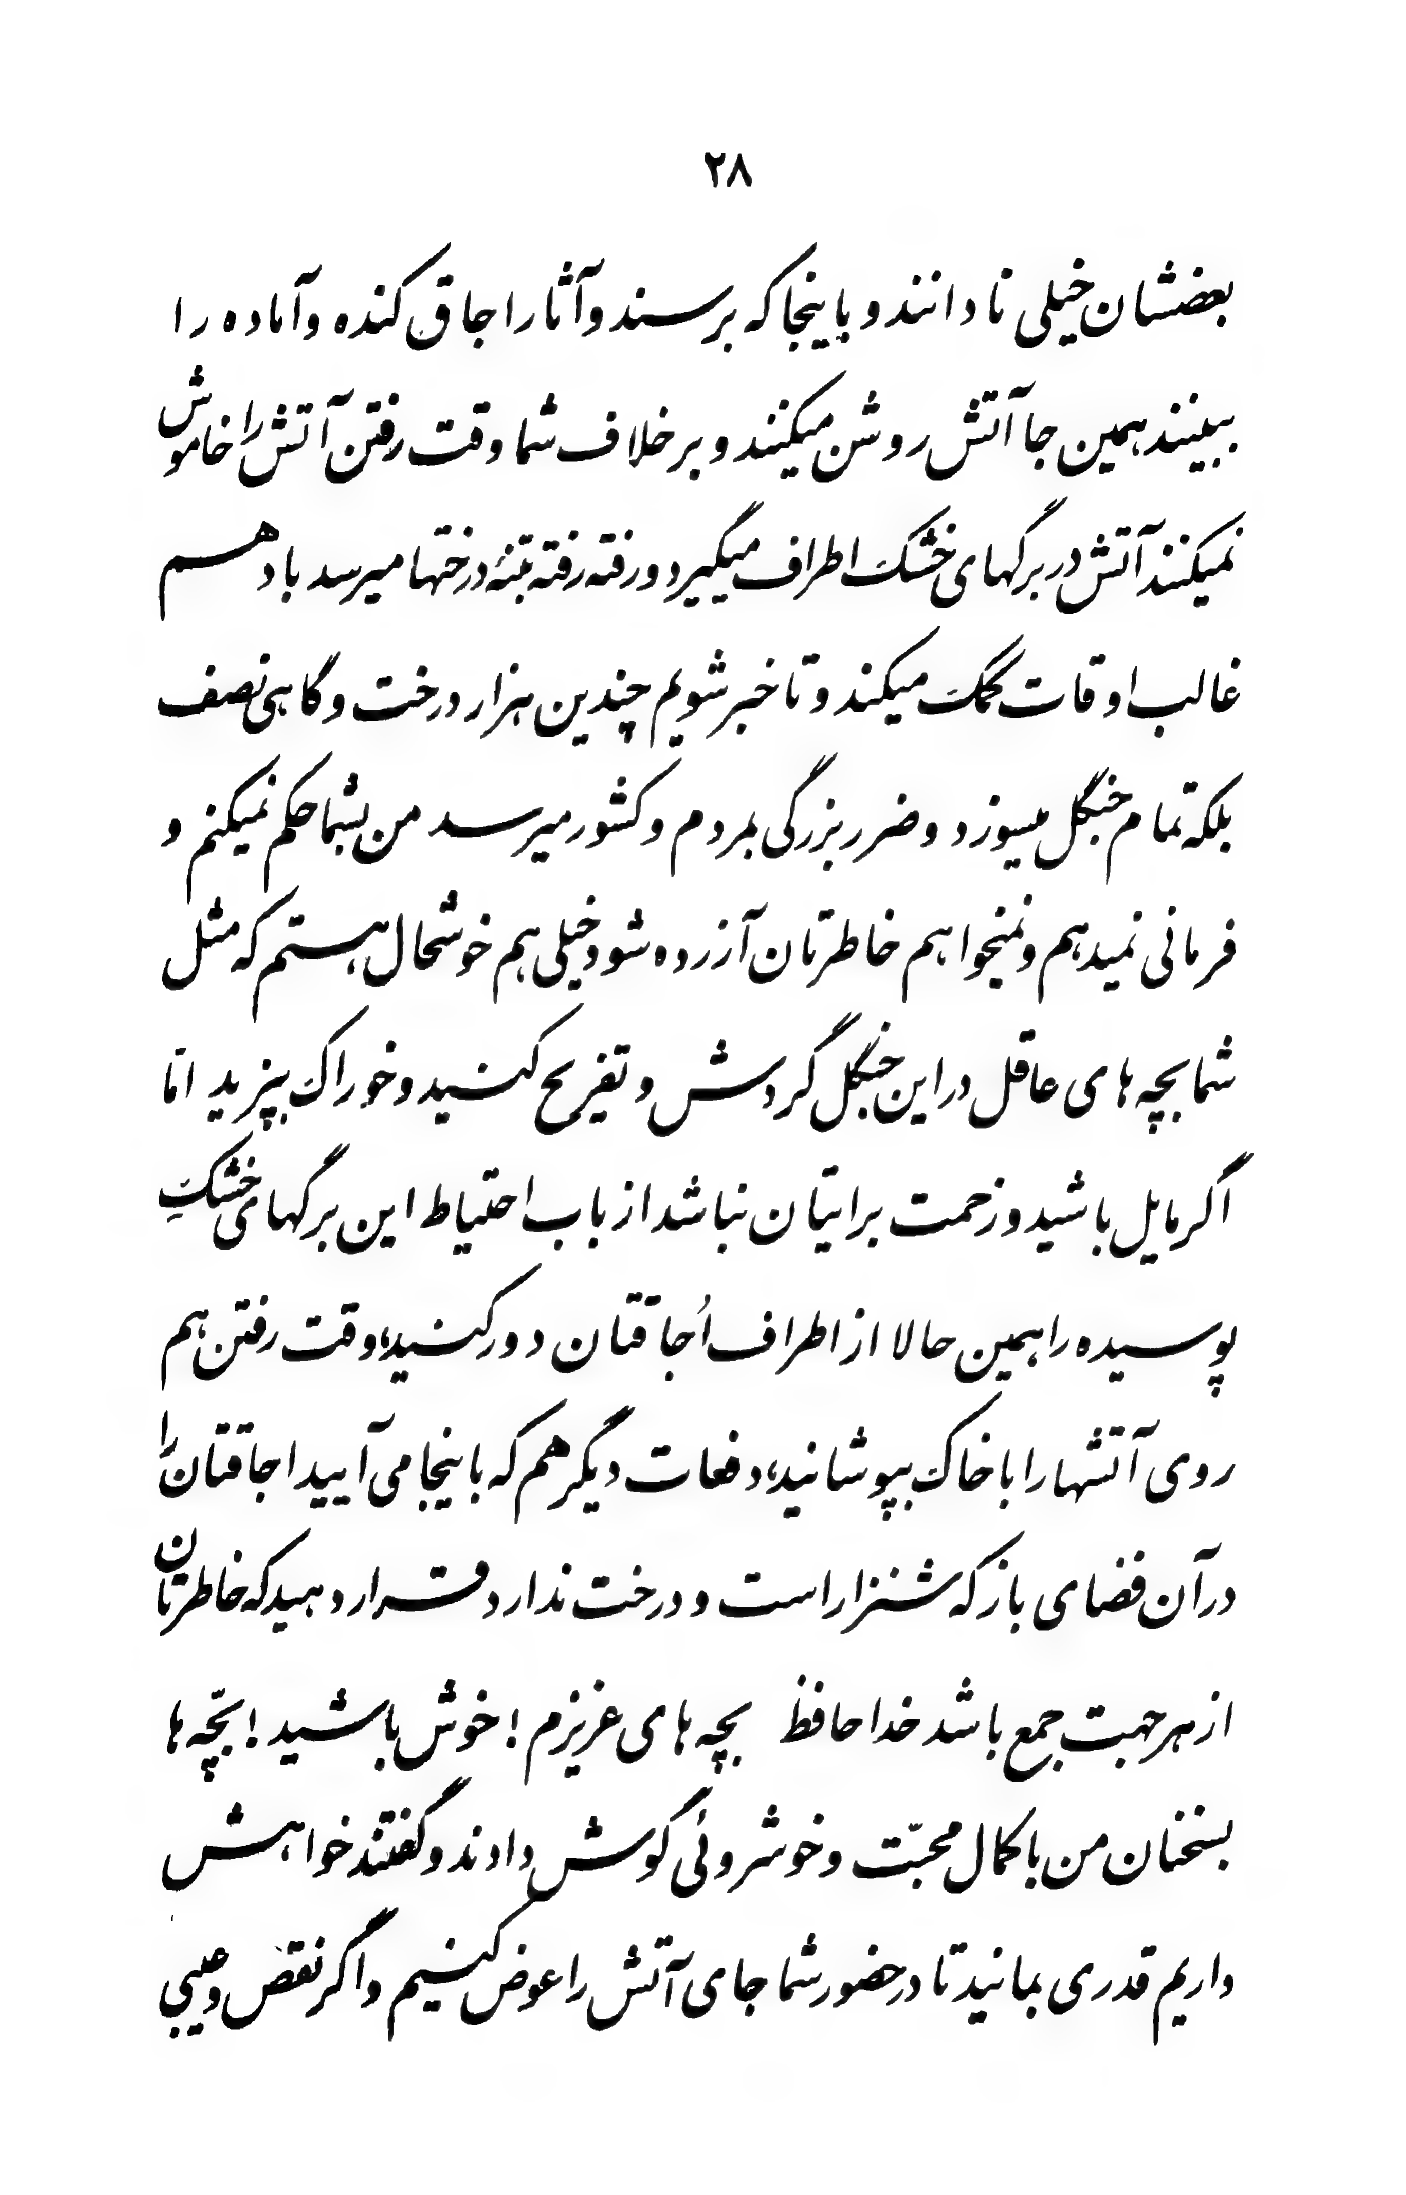 ۲۸
بعضشان خیلی نادانند و باینجا که برسند و آثار اجاق کنده و آماده را
ببینند همین جا آتش روشن میکنند و بر خلاف شما وقت رفتن آتش را خاموش
نمیکنند آتش در برگهای خشک اطراف میگیرد و رفته رفته بتنهٔ درختها میرسد باد هم
غالب اوقات کمک میکند و تا خبر شویم چندین هزار درخت و گاهی نصف
بلکه تمام جنگل میسوزد و ضرر بزرگی بمردم و کشور میرسد من بشما حکم نمیکنم و
فرمانی نمیدهم و نمیخواهم خاطرتان آزرده شود خیلی هم خوشحال هستم که مثل
شما بچه های عاقل در این جنگل گردش و تفریح کنید و خوراک بپزید امّا
اگر مایل باشید و زحمت برایتان نباشد از باب احتیاط این برگهای خشکِ
پوسیده را همین حالا از اطراف اُجاقتان دور کنید، وقت رفتن هم
روی آتشها را با خاک بپوشانید، دفعات دیگر هم که باینجا می آیید اجاقتان را
در آن فضای باز که شنزار است و درخت ندارد قرار دهید که خاطرتان
از هر جهت جمع باشد خدا حافظ بچه های عزیزم ! خوش باشید ! بچّه ها
بسخنان من با کمال محبّت و خوشروئی گوش دادند و گفتند خواهش
داریم قدری بمانید تا در حضور شما جای آتش را عوض کنیم و اگر نقص و عیبی